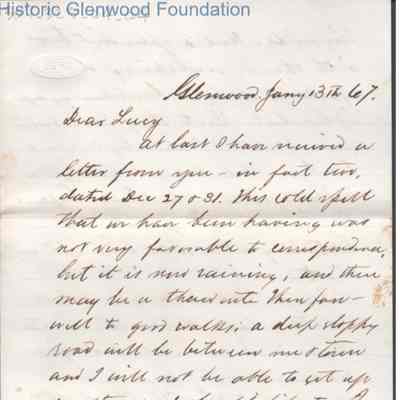 Historic Glenwood Foundation
Glenwood Jany 13th 67.
Dear Lucy
at last I have received a
letter from you - in fact two,
dated Dec 27 & 31. This cold spell
that we have been having was
not very favorable to correspondence,
but it is now raining, and there
may be a thaw into then fare-
well to good walks; a deep sloppy
road will be between me & town
and I will not be able to get up